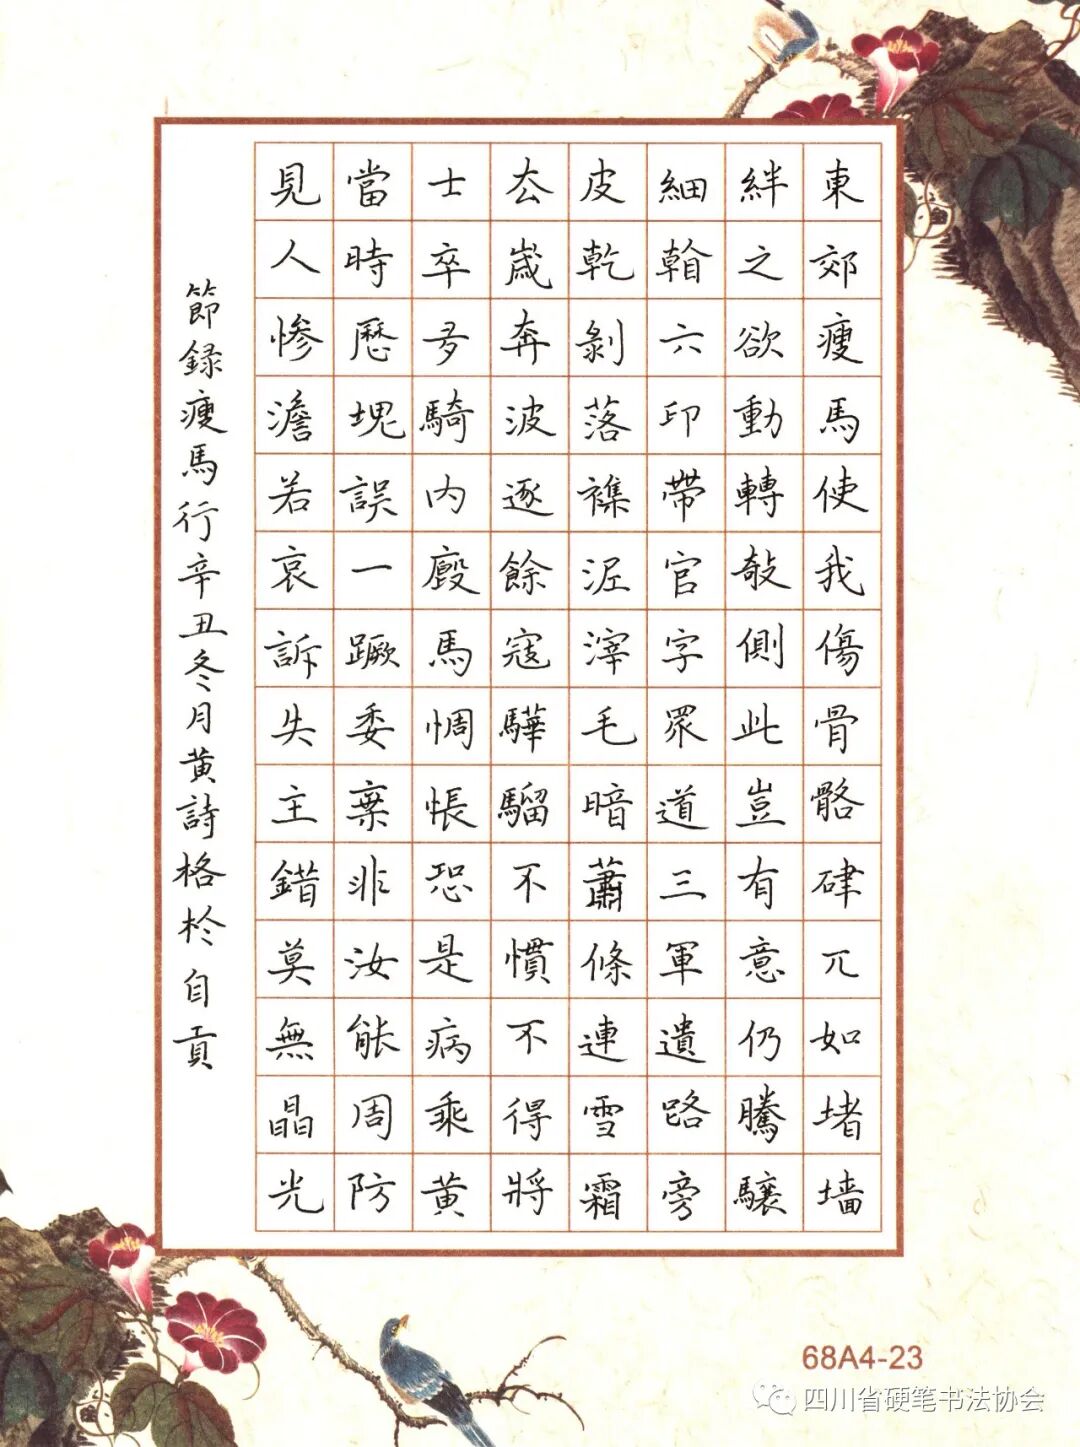 東郊瘦馬使我傷骨骼硉兀如堵墙
絆之欲動轉攲側此豈有意仍騰驤
細看六印帶官字眾道三軍遺路旁
皮乾剝落襍泥滓毛暗蕭條連雪霜
去歲奔波逐餘寇驊騮不慣不得將
士卒多騎内廄馬惆悵恐是病乘黃
當時歷塊誤一蹶委棄非汝能周防
見人惨澹若哀訴失主錯莫無晶光
節録瘦馬行辛丑冬月黄詩格於自貢
68A4-23
四川省硬笔书法协会